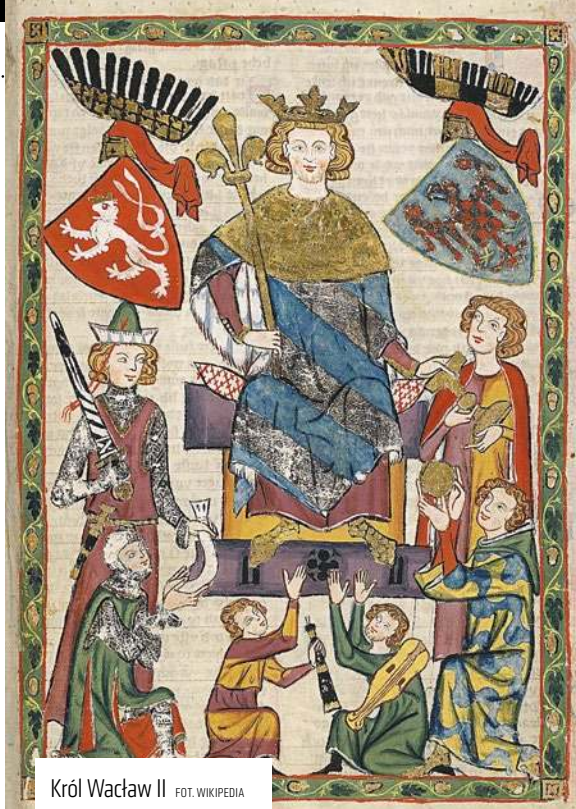 Król Wacław II FOT. WIKIPEDIA